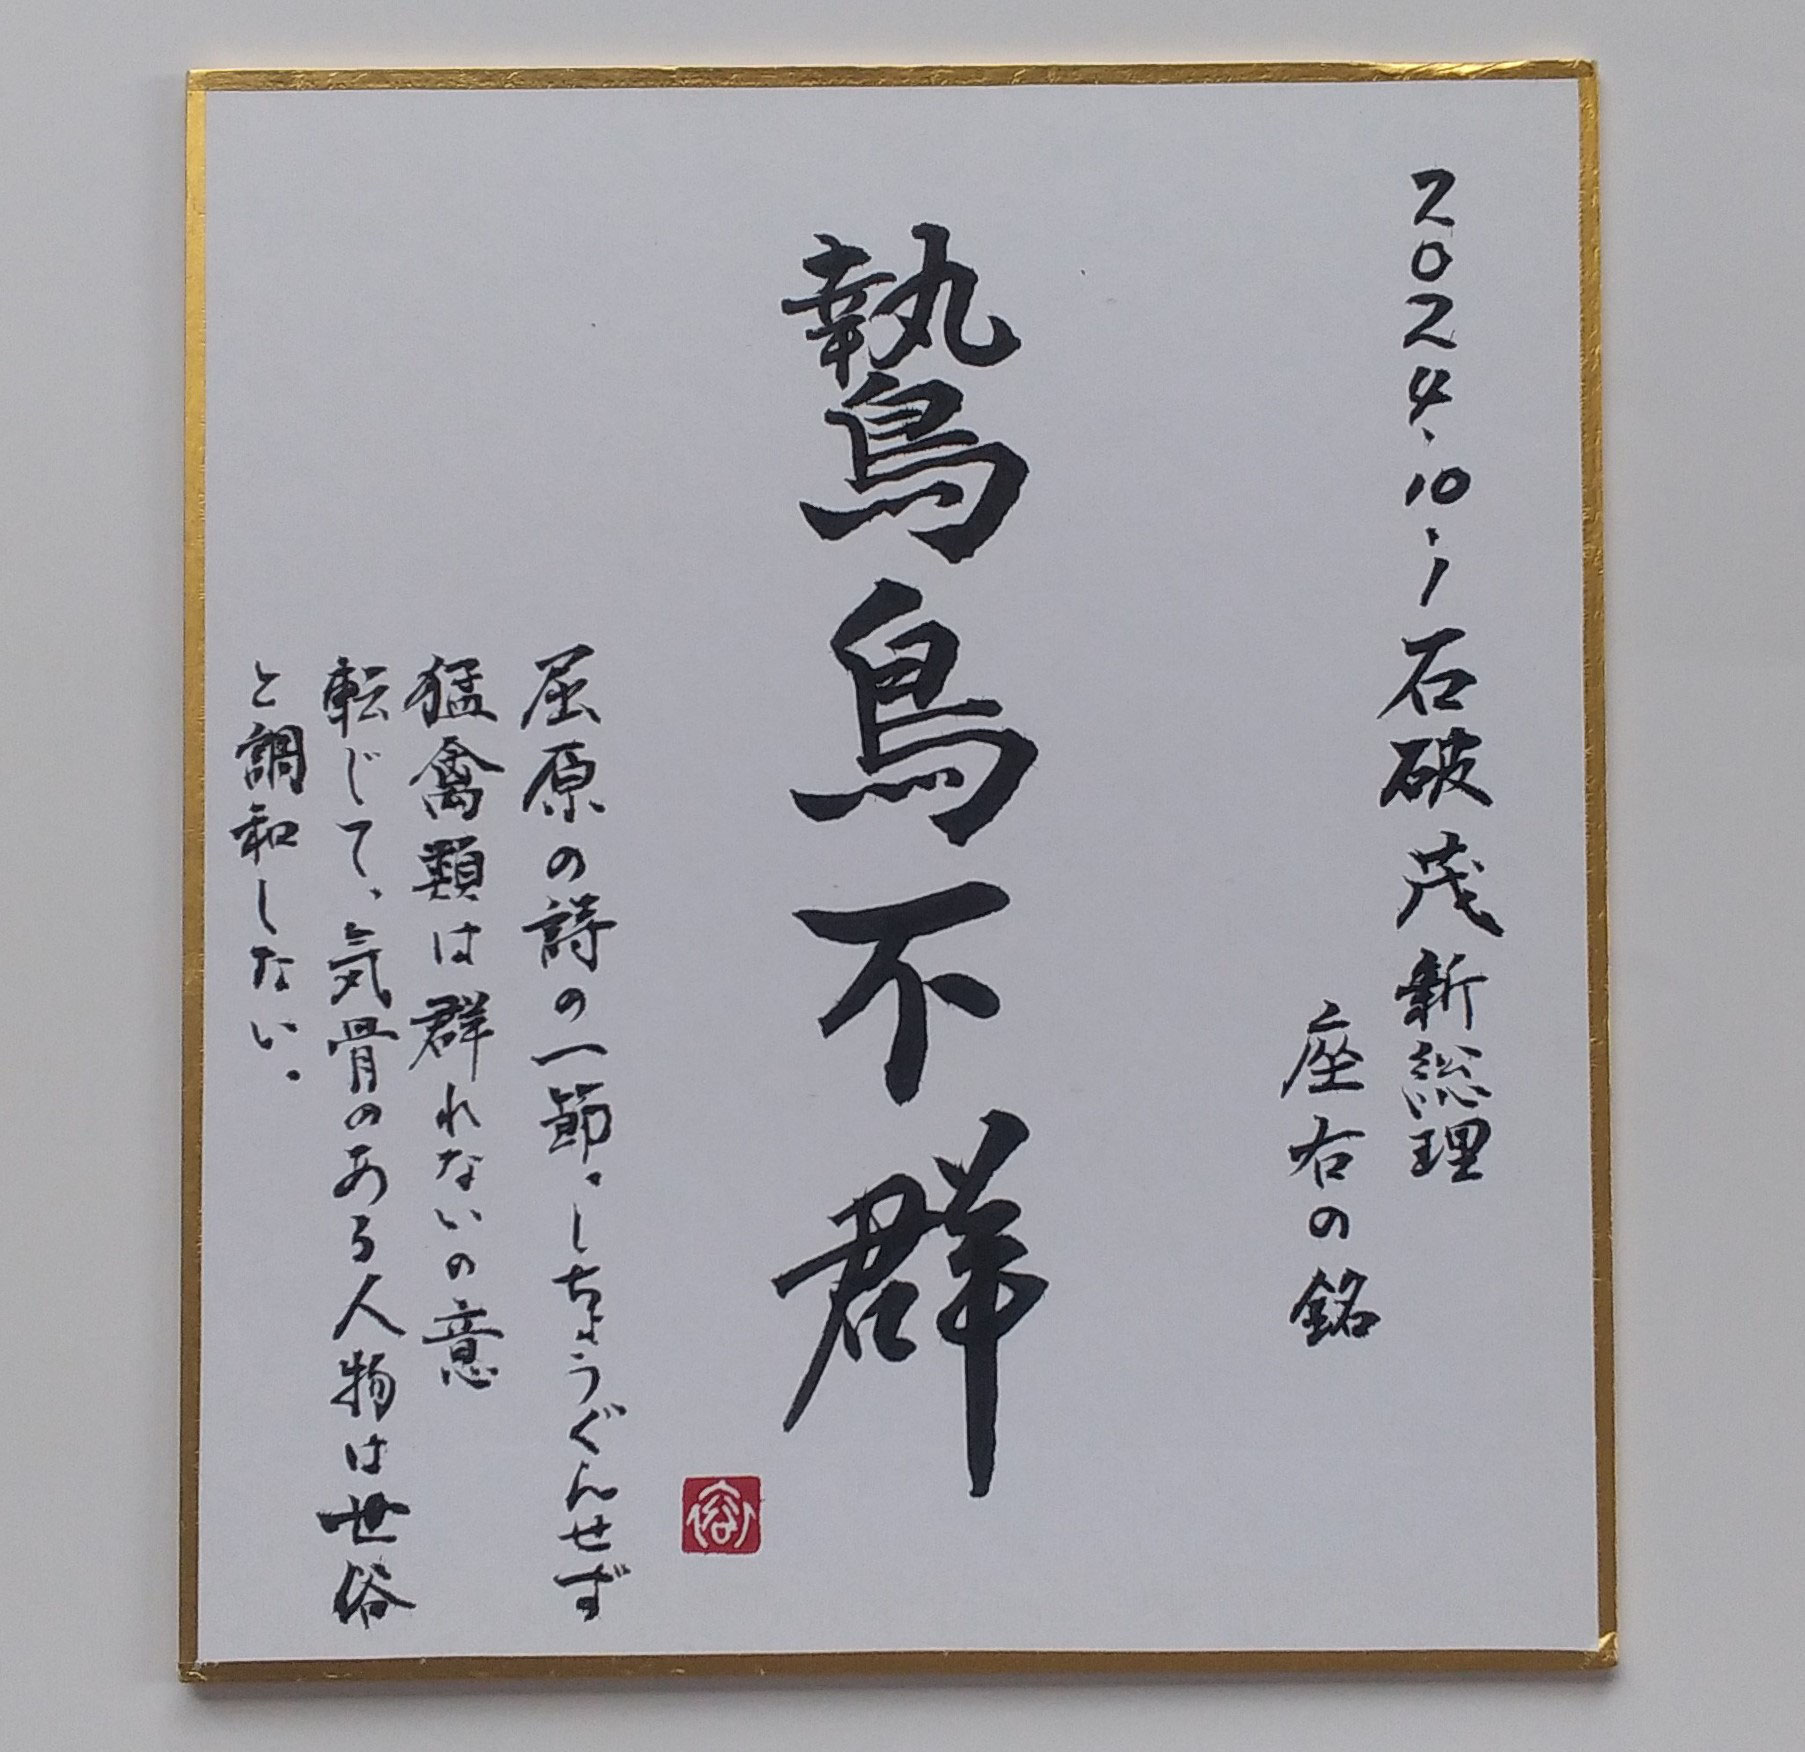 2024.10.1石破茂新総理
座右の銘
鷙鳥不群
屈原の詩の一節。しちょうぐんせず
猛禽類は群れないの意
転じて、気骨のある人物は世俗
と調和しない。